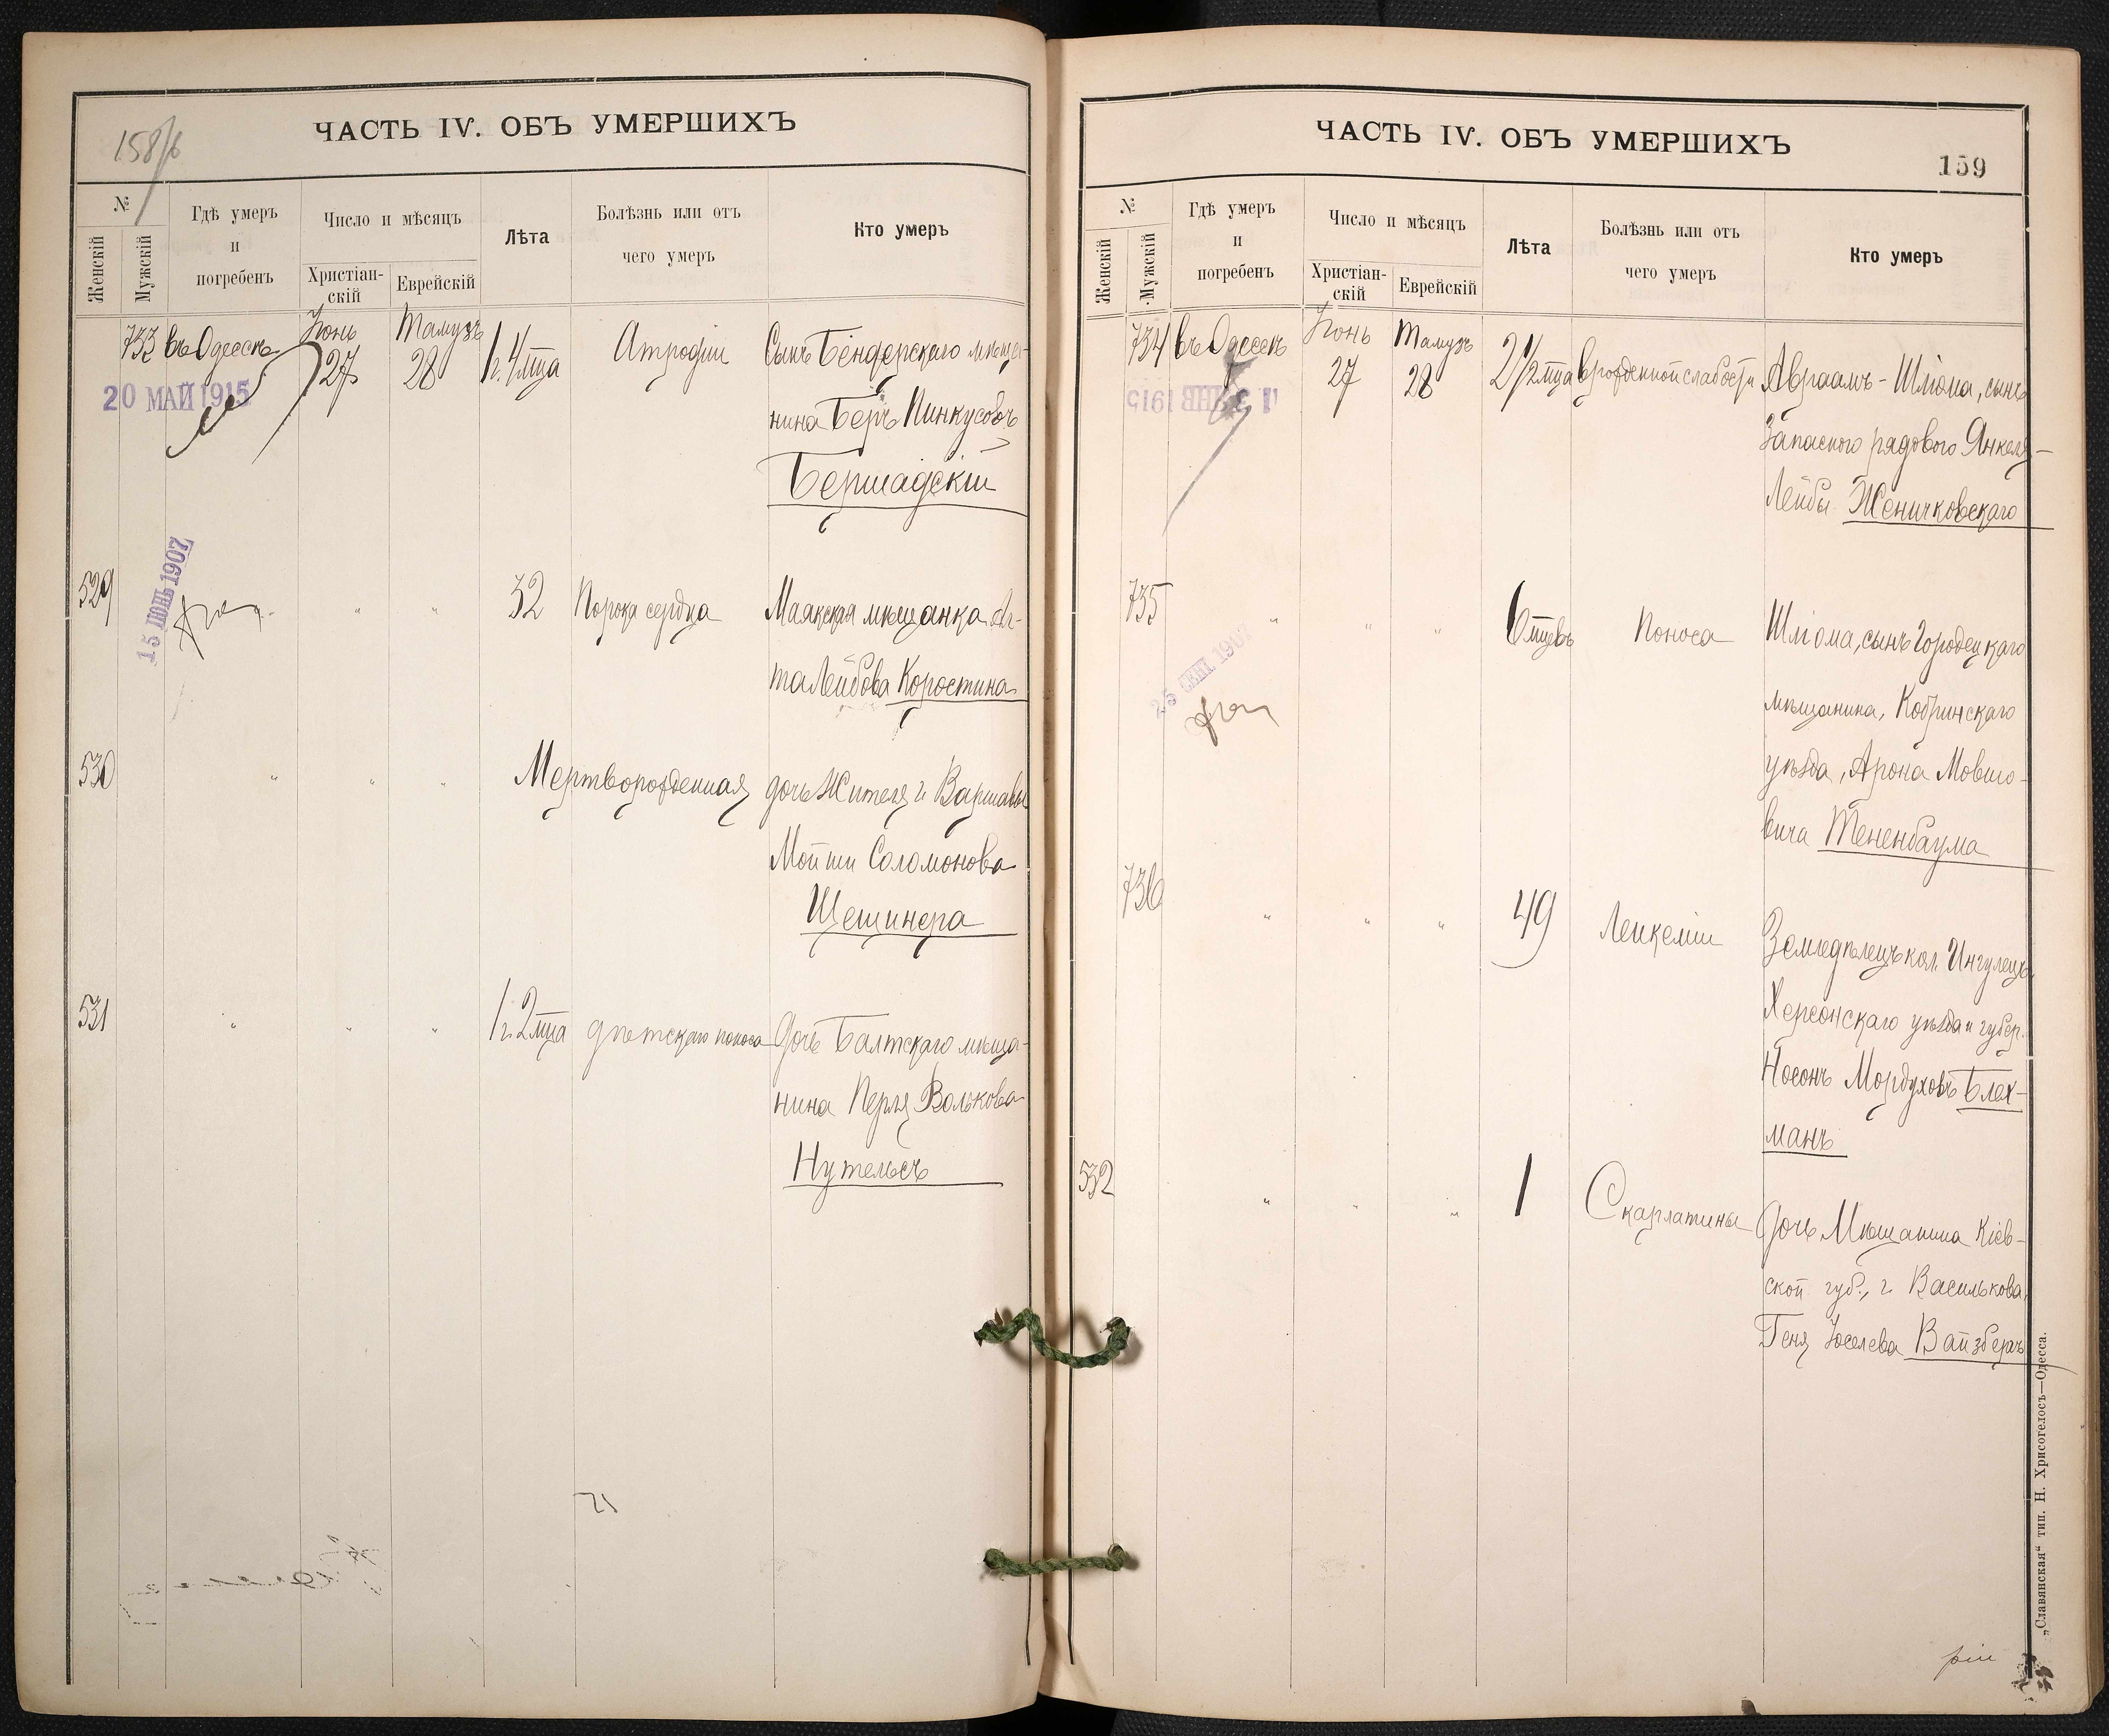 158/б
ЧАСТЬ IV. ОБЪ УМЕРШИХЪ
№
Женскій
Мужскій
Гдѣ умеръ
и
погребенъ
Число и мѣсяцъ
Христіан-
скій
Еврейскій
Лѣта
Болѣзнь или отъ
чего умеръ
Кто умеръ
733 въ Одессѣ Іюнь 27 Тамузъ 28 1 г. 4 мца Атрофіи Сынъ Бендерскаго мѣща-
нина Беръ Пинкусовъ
Бершадскій
20 МАЙ 1915
529 " " 32 Порока сердца Маякская мѣщанка
та Лейбова Коростина
15 ІЮНЬ 1907
530 " " " Мертворожденная дочь жителя г. Варшавы
Мойши Соломонова
Щешинера
531 " " " 1 г. 2 мца дѣтскаго поноса Дочь Балтскаго мѣща-
нина Перля Волькова
Нутельсъ
ЧАСТЬ IV. ОБЪ УМЕРШИХЪ
159
№
Женскій
Мужскій
Гдѣ умеръ
и
погребенъ
Число и мѣсяцъ
Христіан-
скій
Еврейскій
Лѣта
Болѣзнь или отъ
чего умеръ
Кто умеръ
734 въ Одессѣ Іюнь 27 Тамузъ 28 2 1/2 мца врожденной слабости Авраамъ-Шліома, сынъ
запаснаго рядового Янкеля-
Лейбы Женичковскаго
ЯНВ 1915
735 " " " 6 мцевъ Поноса Шліома, сынъ Городецкаго
мѣщанина, Кобринскаго
уѣзда, Арона Мовшо-
вича Тененбаума
25 СЕНТ 1907
736 " " " 49 Лейкеміи Земледѣлецъ кол. Ингулецъ
Херсонскаго уѣзда и губер.
Носонъ Мордуховъ Блех-
манъ
532 " " " 1 Скарлатины Дочь Мѣщанина Кіев-
ской губ., г. Василькова,
Геня Іоселева Вайзбергъ
„Славянская" тип. Н. Хрисогелосъ—Одесса.